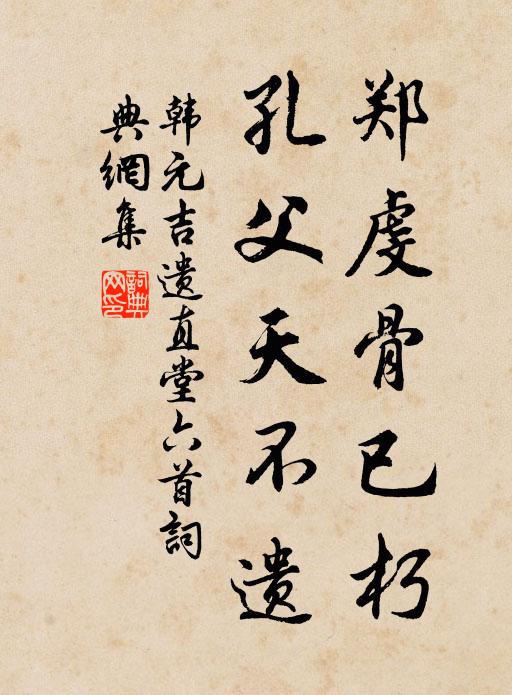 郑虔骨已朽
孔父天不遗
韩元吉遗直堂六首詞
典網集
詞典
网印